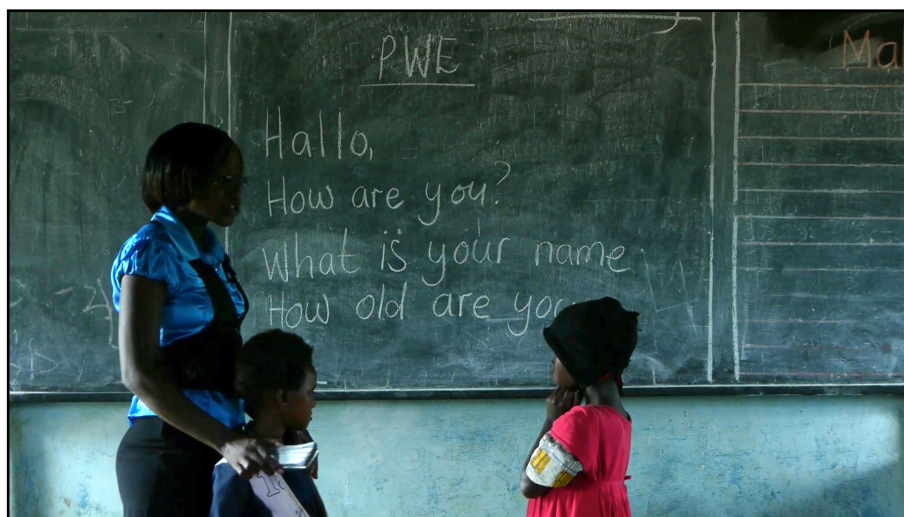 PWE
Hallo,
How are you?
What is your name
How old are you
Ma